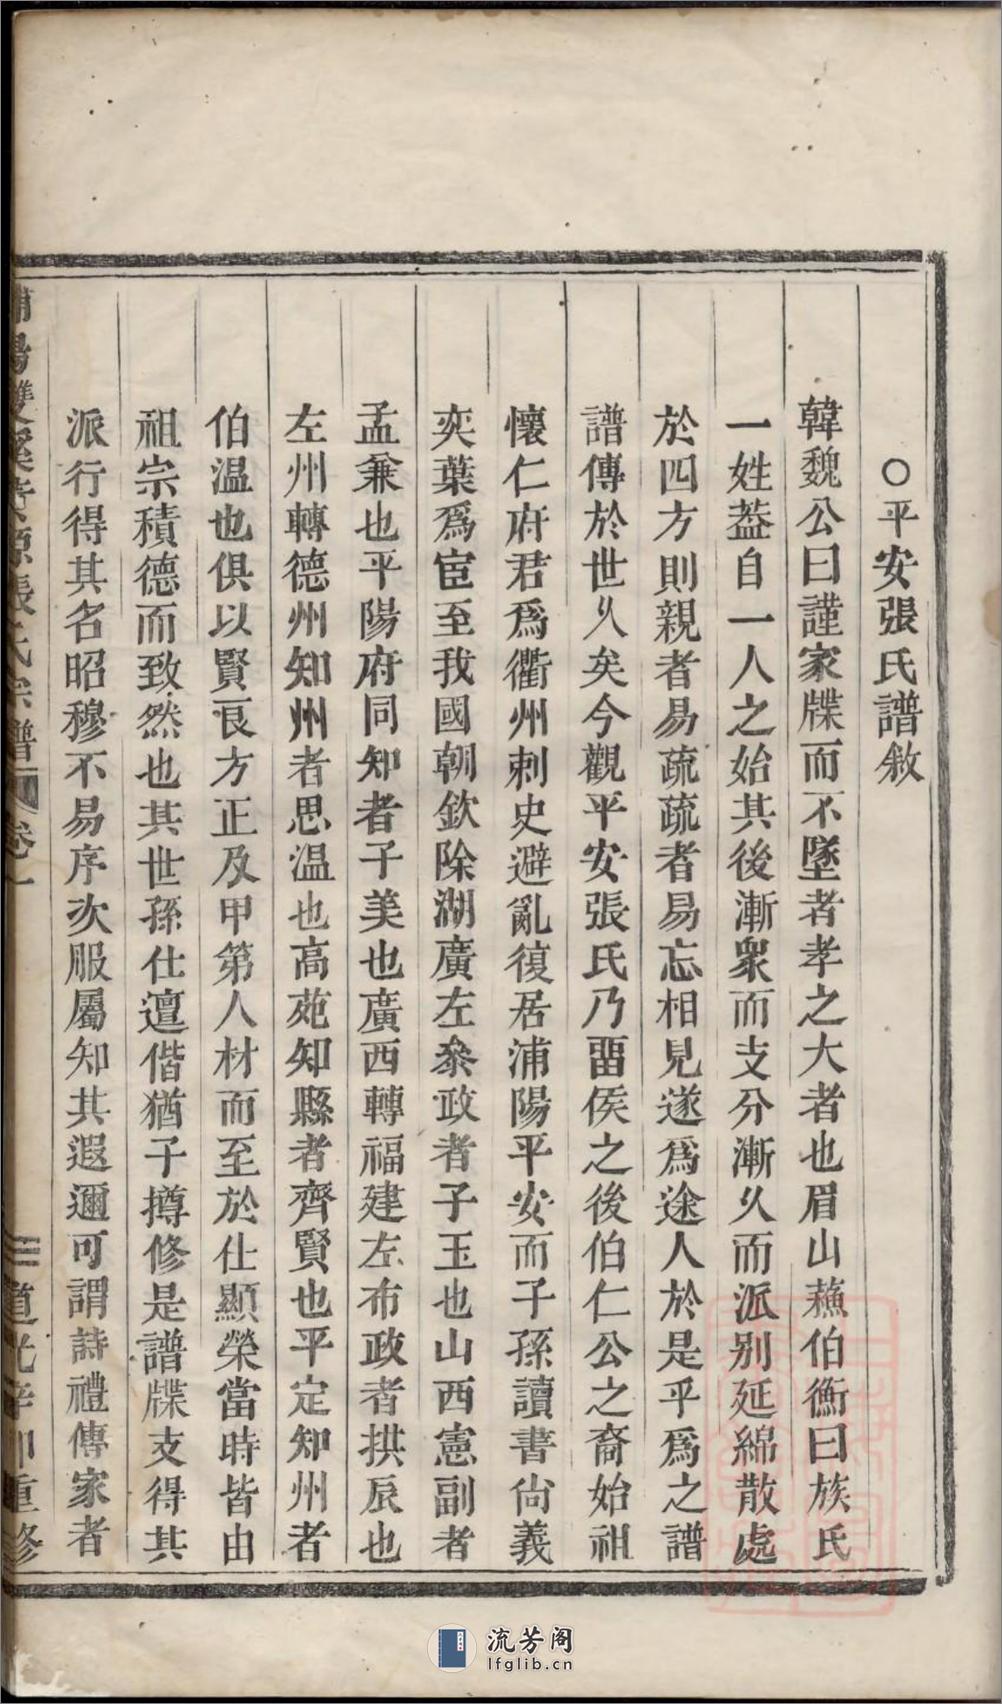 ○平安張氏譜敘
韓魏公曰謹家牒而不墜者孝之大者也眉山蘓伯衡曰族氏
一姓葢自一人之始其後漸衆而支分漸乆而派别延綿散處
於四方則親者易疏疏者易忘相見遂爲途人於是乎爲之譜
譜傳於世乆矣今觀平安張氏乃畱侯之後伯仁公之裔始祖
懷仁府君爲衢州刺史避亂復居浦陽平安而子孫讀書尙義
奕葉爲宦至我國朝欽除湖廣左叅政者子玉也山西憲副者
孟兼也平陽府同知者子美也廣西轉福建左布政者拱辰也
左州轉德州知州者思温也高苑知縣者齊賢也平定知州者
伯温也俱以賢良方正及甲第人材而至於仕顯榮當時皆由
祖宗積德而致然也其世孫仕邅偕猶子撙修是譜牒支得其
派行得其名昭穆不易序次服屬知其遐邇可謂詩禮傳家者
浦陽雙溪黃源張氏宗譜 卷一 三 道光辛卯重修
流芳阁
lfglib.cn